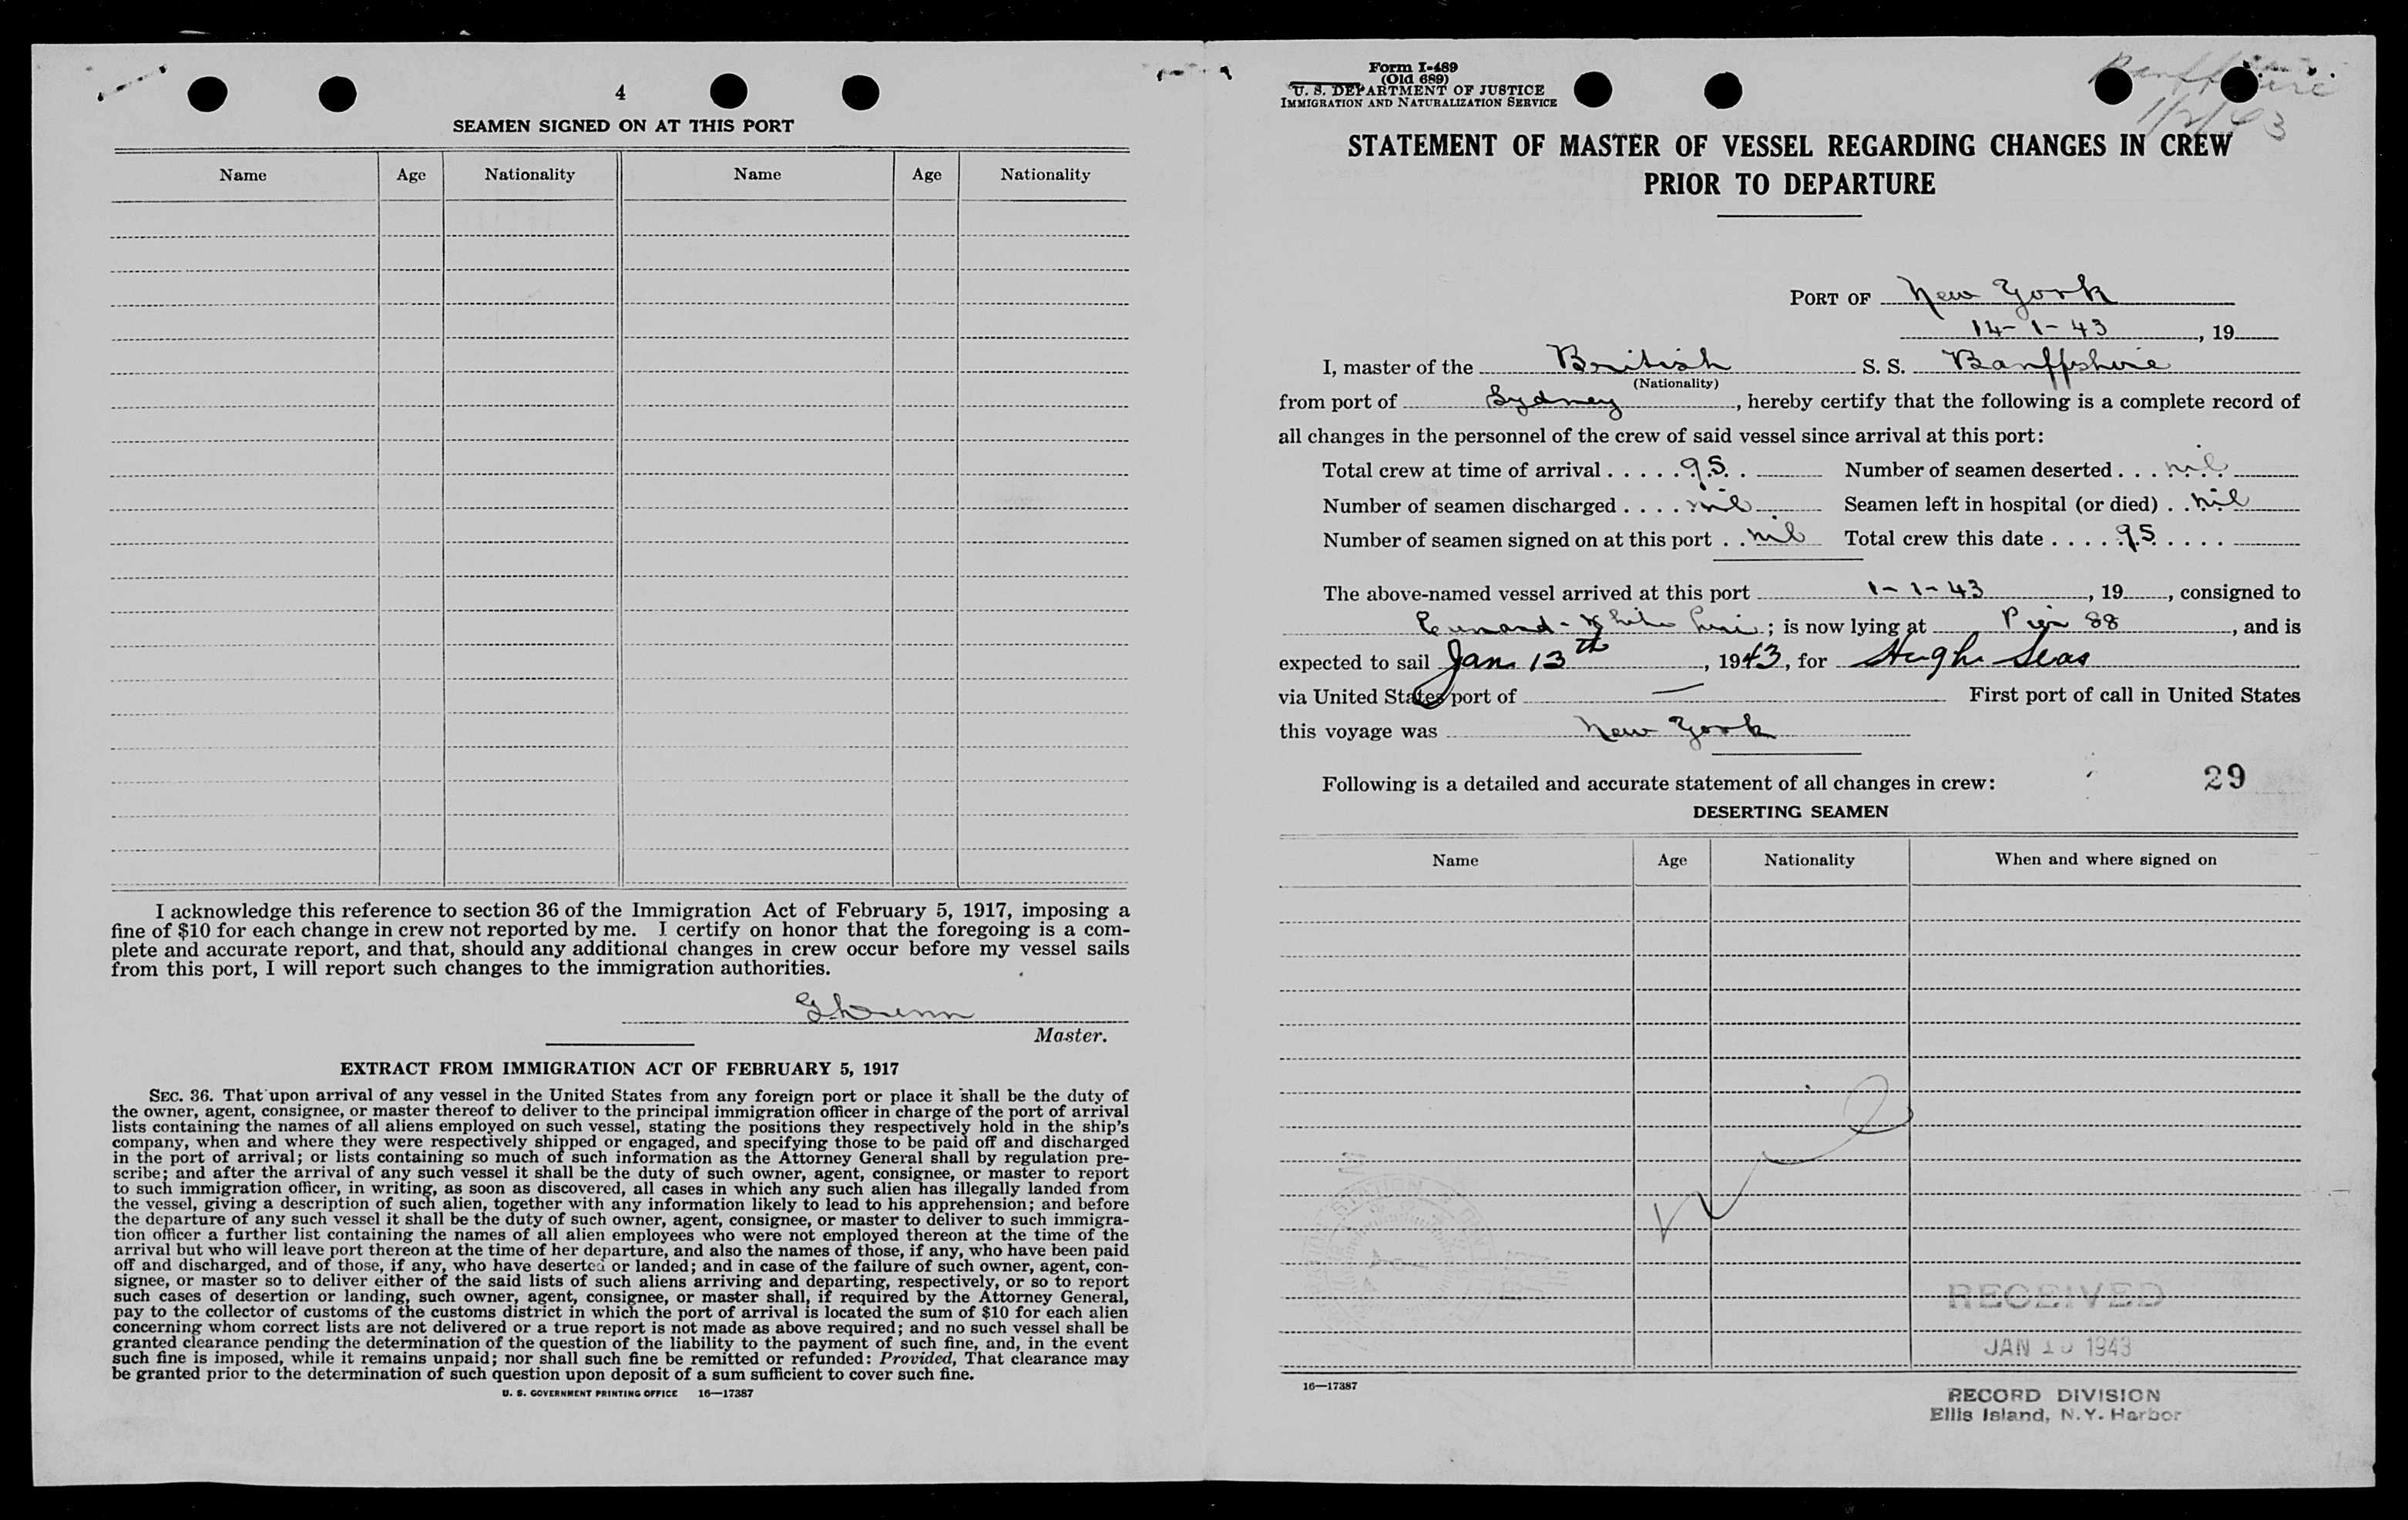 4
SEAMEN SIGNED ON AT THIS PORT
Name Age Nationality Name Age Nationality
I acknowledge this reference to section 36 of the Immigration Act of February 5, 1917, imposing a
fine of $10 for each change in crew not reported by me. I certify on honor that the foregoing is a com-
plete and accurate report, and that, should any additional changes in crew occur before my vessel sails
from this port, I will report such changes to the immigration authorities.
Master.
EXTRACT FROM IMMIGRATION ACT OF FEBRUARY 5, 1917
SEC. 36. That upon arrival of any vessel in the United States from any foreign port or place it shall be the duty of
the owner, agent, consignee, or master thereof to deliver to the principal immigration officer in charge of the port of arrival
lists containing the names of all aliens employed on such vessel, stating the positions they respectively hold in the ship's
company, when and where they were respectively shipped or engaged, and specifying those to be paid off and discharged
in the port of arrival; or lists containing so much of such information as the Attorney General shall by regulation pre-
scribe; and after the arrival of any such vessel it shall be the duty of such owner, agent, consignee, or master to report
to such immigration officer, in writing, as soon as discovered, all cases in which any such alien has illegally landed from
the vessel, giving a description of such alien, together with any information likely to lead to his apprehension; and before
the departure of any such vessel it shall be the duty of such owner, agent, consignee, or master to deliver to such immigra-
tion officer a further list containing the names of all alien employees who were not employed thereon at the time of the
arrival but who will leave port thereon at the time of her departure, and also the names of those, if any, who have been paid
off and discharged, and of those, if any, who have deserted or landed; and in case of the failure of such owner, agent, con-
signee, or master so to deliver either of the said lists of such aliens arriving and departing, respectively, or so to report
such cases of desertion or landing, such owner, agent, consignee, or master shall, if required by the Attorney General,
pay to the collector of customs of the customs district in which the port of arrival is located the sum of $10 for each alien
concerning whom correct lists are not delivered or a true report is not made as above required; and no such vessel shall be
granted clearance pending the determination of the question of the liability to the payment of such fine, and, in the event
such fine is imposed, while it remains unpaid; nor shall such fine be remitted or refunded: Provided, That clearance may
be granted prior to the determination of such question upon deposit of a sum sufficient to cover such fine.
U. S. GOVERNMENT PRINTING OFFICE 16—17387
Form I-489
(Old 689)
U. S. DEPARTMENT OF JUSTICE
IMMIGRATION AND NATURALIZATION SERVICE
Banffshire
STATEMENT OF MASTER OF VESSEL REGARDING CHANGES IN CREW
PRIOR TO DEPARTURE
PORT OF New York
14-1-43, 19
I, master of the British S. S. Banffshire
(Nationality)
from port of Sydney, hereby certify that the following is a complete record of
all changes in the personnel of the crew of said vessel since arrival at this port:
Total crew at time of arrival . . . . . 95 . Number of seamen deserted . . . nil
Number of seamen discharged . . . . nil Seamen left in hospital (or died) . . nil
Number of seamen signed on at this port . . nil Total crew this date . . . . . 95 . . . .
The above-named vessel arrived at this port 1-1-43, 19, consigned to
Cunard-White Line; is now lying at Pier 88, and is
expected to sail Jan. 13th, 1943, for High Seas
via United States port of — First port of call in United States
this voyage was New York
Following is a detailed and accurate statement of all changes in crew:
29
DESERTING SEAMEN
Name Age Nationality When and where signed on
nil
RECEIVED
JAN 1943
16—17387
RECORD DIVISION
Ellis Island, N.Y. Harbor